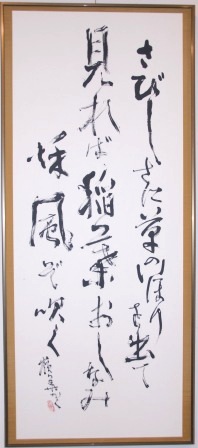 さびしさに草のいほりを出て
見れば稲葉おしなみ
秌風ぞ吹く